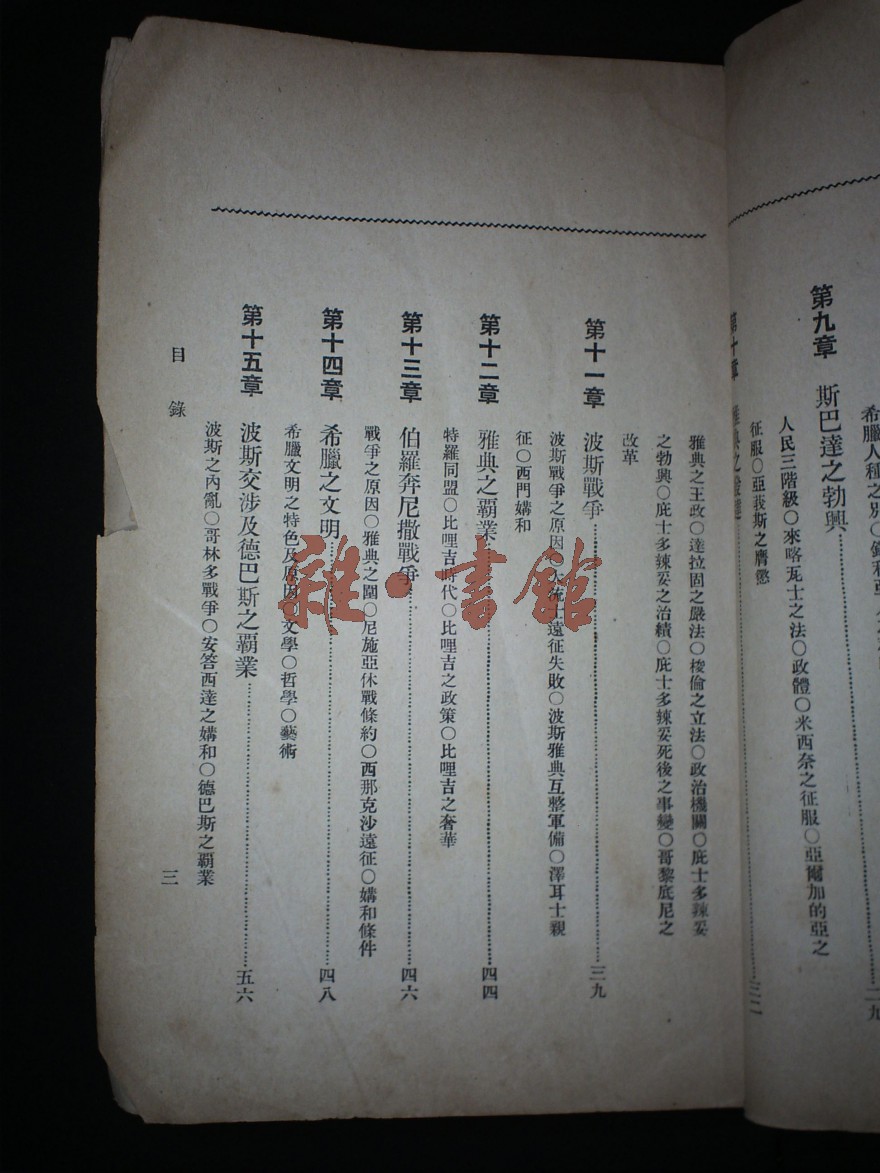 希臘人種之別〇
二九
第九章 斯巴達之勃興
人民三階級〇來喀瓦士之法〇政體〇米西奈之征服〇亞爾加的亞之
征服〇亞莪斯之膺懲
第十章 雅典之發達
三二
雅典之王政〇達拉固之嚴法〇梭倫之立法〇政治機關〇庇士多辣妥
之勃興〇庇士多辣妥之治績〇庇士多辣妥死後之事變〇哥黎底尼之
改革
第十一章 波斯戰爭 三九
波斯戰爭之原因〇大流士遠征失敗〇波斯雅典互整軍備〇澤耳士親
征〇西門媾和
第十二章 雅典之霸業 四四
特羅同盟〇比哩吉時代〇比哩吉之政策〇比哩吉之奢華
第十三章 伯羅奔尼撒戰爭 四六
戰爭之原因〇雅典之闘〇尼施亞休戰條約〇西那克沙遠征〇媾和條件
第十四章 希臘之文明 四八
希臘文明之特色及原因〇文學〇哲學〇藝術
第十五章 波斯交涉及德巴斯之霸業 五六
波斯之內亂〇哥林多戰爭〇安答西達之媾和〇德巴斯之霸業
目錄
三
雜·書館